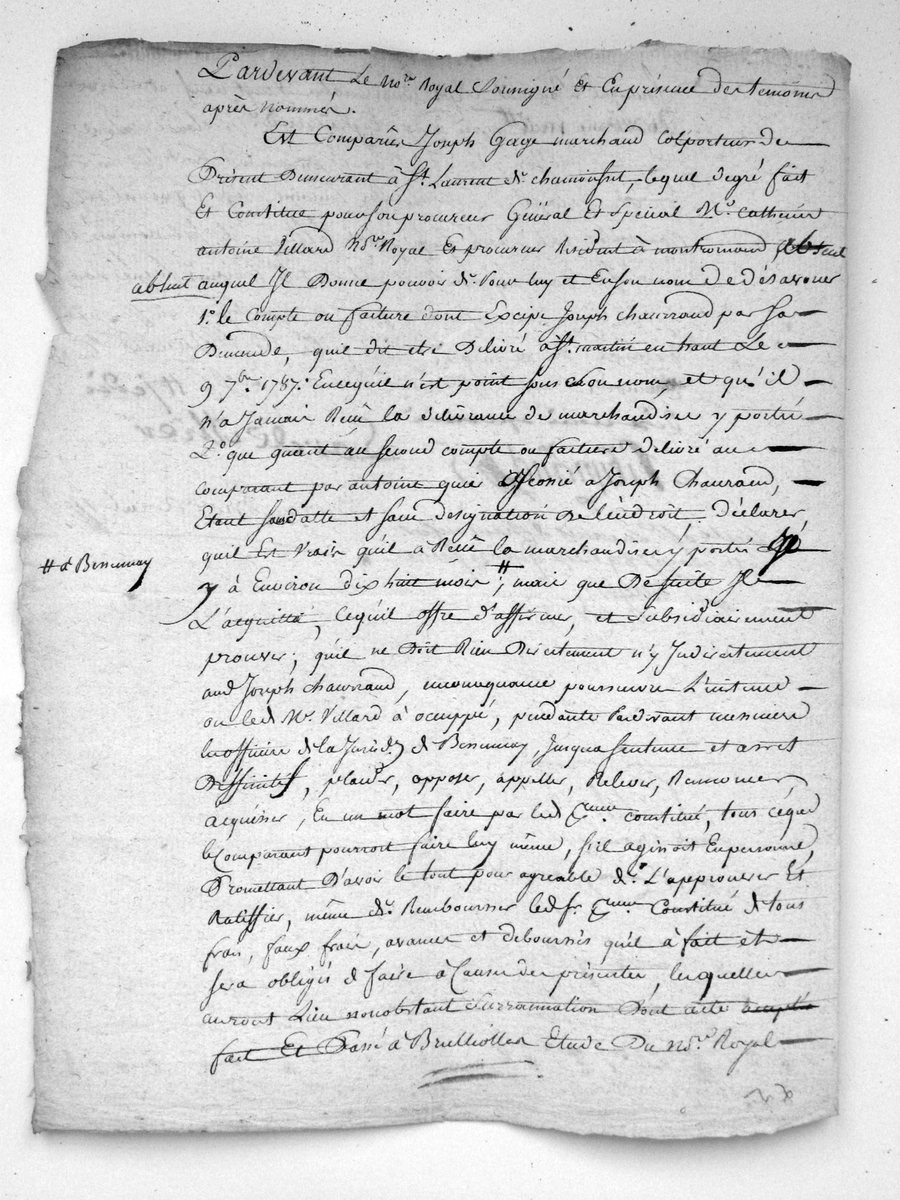 Pardevant Le No.re Royal Soussigné et En présence des temoins
après nommés.
Est Comparüe Joseph Gaye marchand colporteur de
Présent Demeurant à St. Laurent de chamousset, lequel degré fait
Et Constitue pour son procureur Général Et Special Me. Catherin
antoine Villard No.re Royal Et procureur Résidant à montromand absent
absent auquel Il Donne pouvoir de. Pour luy et En son nom de désavouer
1.° le Compte ou facture dont Excipe Joseph chavrand par sa
Demande, qu'il dit etre Délivré à St. martin en haut Le
9 7.bre 1787. En ce qu'il n'est point sous son nom, et qu'il
n'a Jamais Reçu la délivrance de marchandises y portés
2.° que quant au second compte ou facture délivré au
comparant par antoine associé à Joseph Chavrand,
Etant sans datte et sans designation de l'endroit, déclarer
qu'il Est vrai qu'il à Reçu la marchandises y portés
# à Bessenay
y à Environ dix huit mois #, mais que De suite Il
L'acquitta, ce qu'il offre d'affirmer, et Subsidiairement
prouver; qu'il ne Doit Rien Directement n'y Indirectement
aud Joseph chavrand, en conséquance poursuivre L'instance
ou led Me. Villard à occuppé, pendante Pardevant messieurs
les officiers de la Jurid.on de Bessenay, Jusqua sentence et arret
Deffinitifs, plaider, opposer, appeller, Relever, Renoncer
acquiesser, En un mot faire par led constitué, tous ce que
le Comparant pourroit faire luy même, s'il agissoit En personne,
Promettant D'avoir le tout pour agreable de. L'approuver Et
Ratiffier, même de. Rembourser led Constitué de tous
frais, faux frais, avances et déboursés qu'il à fait et
sera obligés de faire à Cause des présentes, lesquelles
auront Lieu nonobstant Surrannation Dont acte
fait Et Passé à Brullioles Etude Du No.re Royal